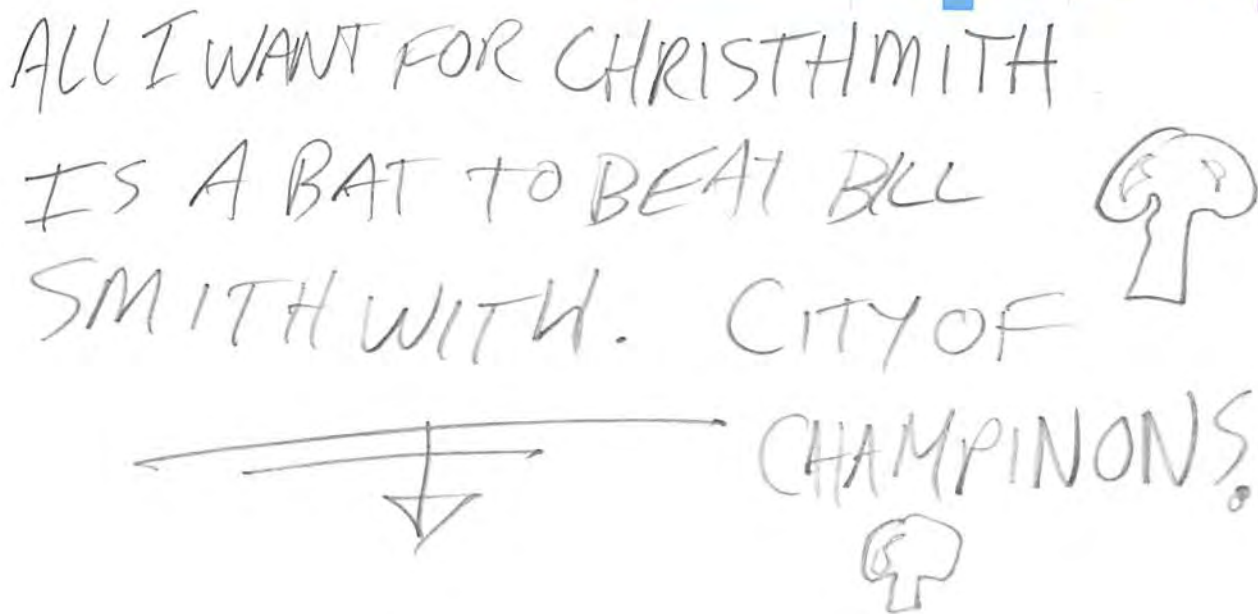 ALL I WANT FOR CHRISTHMITH
IS A BAT TO BEAT BILL
SMITH WITH. CITY OF
CHAMPINONS.